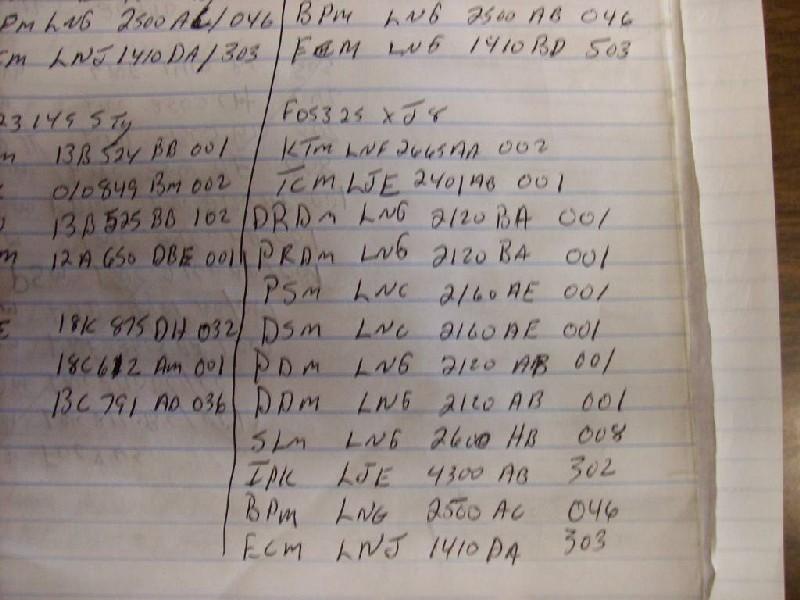 LNG 2500 AC/046
BPM LNG 2500 AB 046
LNJ 1410 DA/303
ECM LNG 1410 BD 503
23149 STY
F05325 XJ8
13B 524 BB 001
KTM LNF 2665AA 002
010849 BM 002
TCM LJE 2401AB 001
13B 525 BB 102
DRDM LNG 2120 BA 001
12A 650 DBE 001
PRDM LNG 2120 BA 001
PSM LNC 2160 AE 001
18K 875 DH 032
DSM LNC 2160 AE 001
18C612 AM 001
PDM LNG 2120 AB 001
13C 791 AD 036
DDM LNG 2120 AB 001
SLM LNG 2600 HB 008
IPK LJE 4300 AB 302
BPM LNG 2500 AC 046
ECM LNJ 1410 DA 303